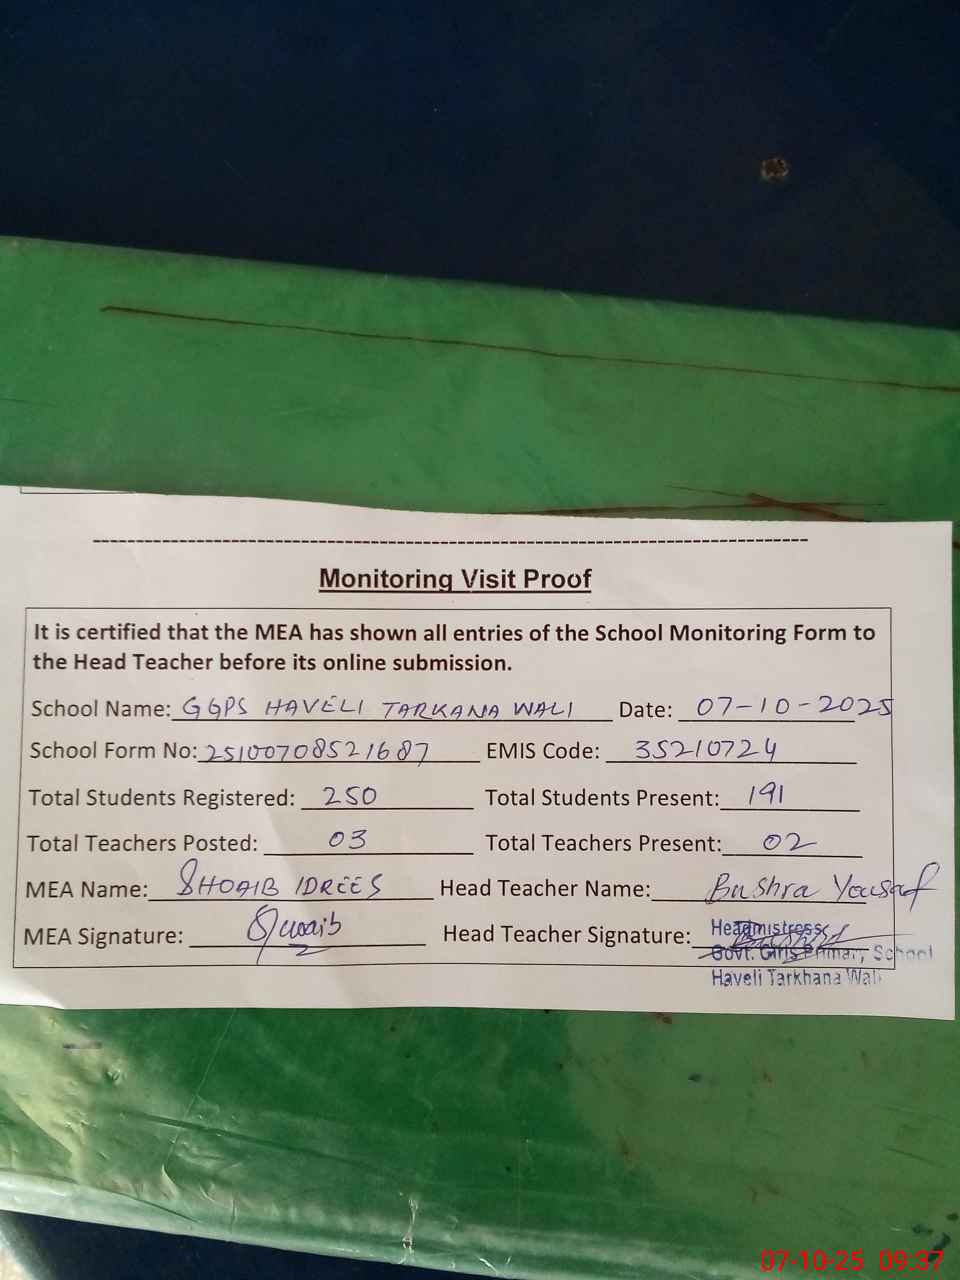 Monitoring Visit Proof
It is certified that the MEA has shown all entries of the School Monitoring Form to
the Head Teacher before its online submission.
School Name: GGPS HAVELI TARKANA WALI Date: 07-10-2025
School Form No: 25100708521687 EMIS Code: 35210724
Total Students Registered: 250 Total Students Present: 191
Total Teachers Posted: 03 Total Teachers Present: 02
MEA Name: SHOAIB IDREES Head Teacher Name: Bushra Yousaf
MEA Signature: Shoaib Head Teacher Signature:
Headmistress
Govt. Girls Primary School
Haveli Tarkhana Wali
07-10-25 09:37